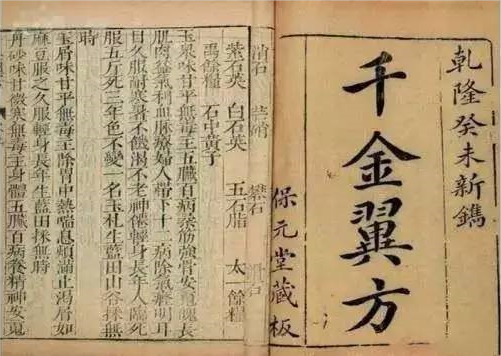 乾隆癸未新鐫
千金翼方
保元堂藏板
消石 芒硝 礬石 滑石
紫石英 白石英 五石脂 太一餘糧
禹餘糧 石中黃子
玉泉味甘平無毒主五臟百病柔筋強骨安魂魄長
肌肉益氣利血脈療婦人帶下十二病除氣癃明耳
目久服耐寒暑不飢渴不老神僊輕身長年人臨死
服五斤死三年色不變一名玉札生藍田山谷採無
時
玉屑味甘平無毒主除胃中熱喘息煩滿止渴屑如
麻豆服之久服輕身長年生藍田採無時
丹砂味甘微寒無毒主身體五臟百病養精神安魂